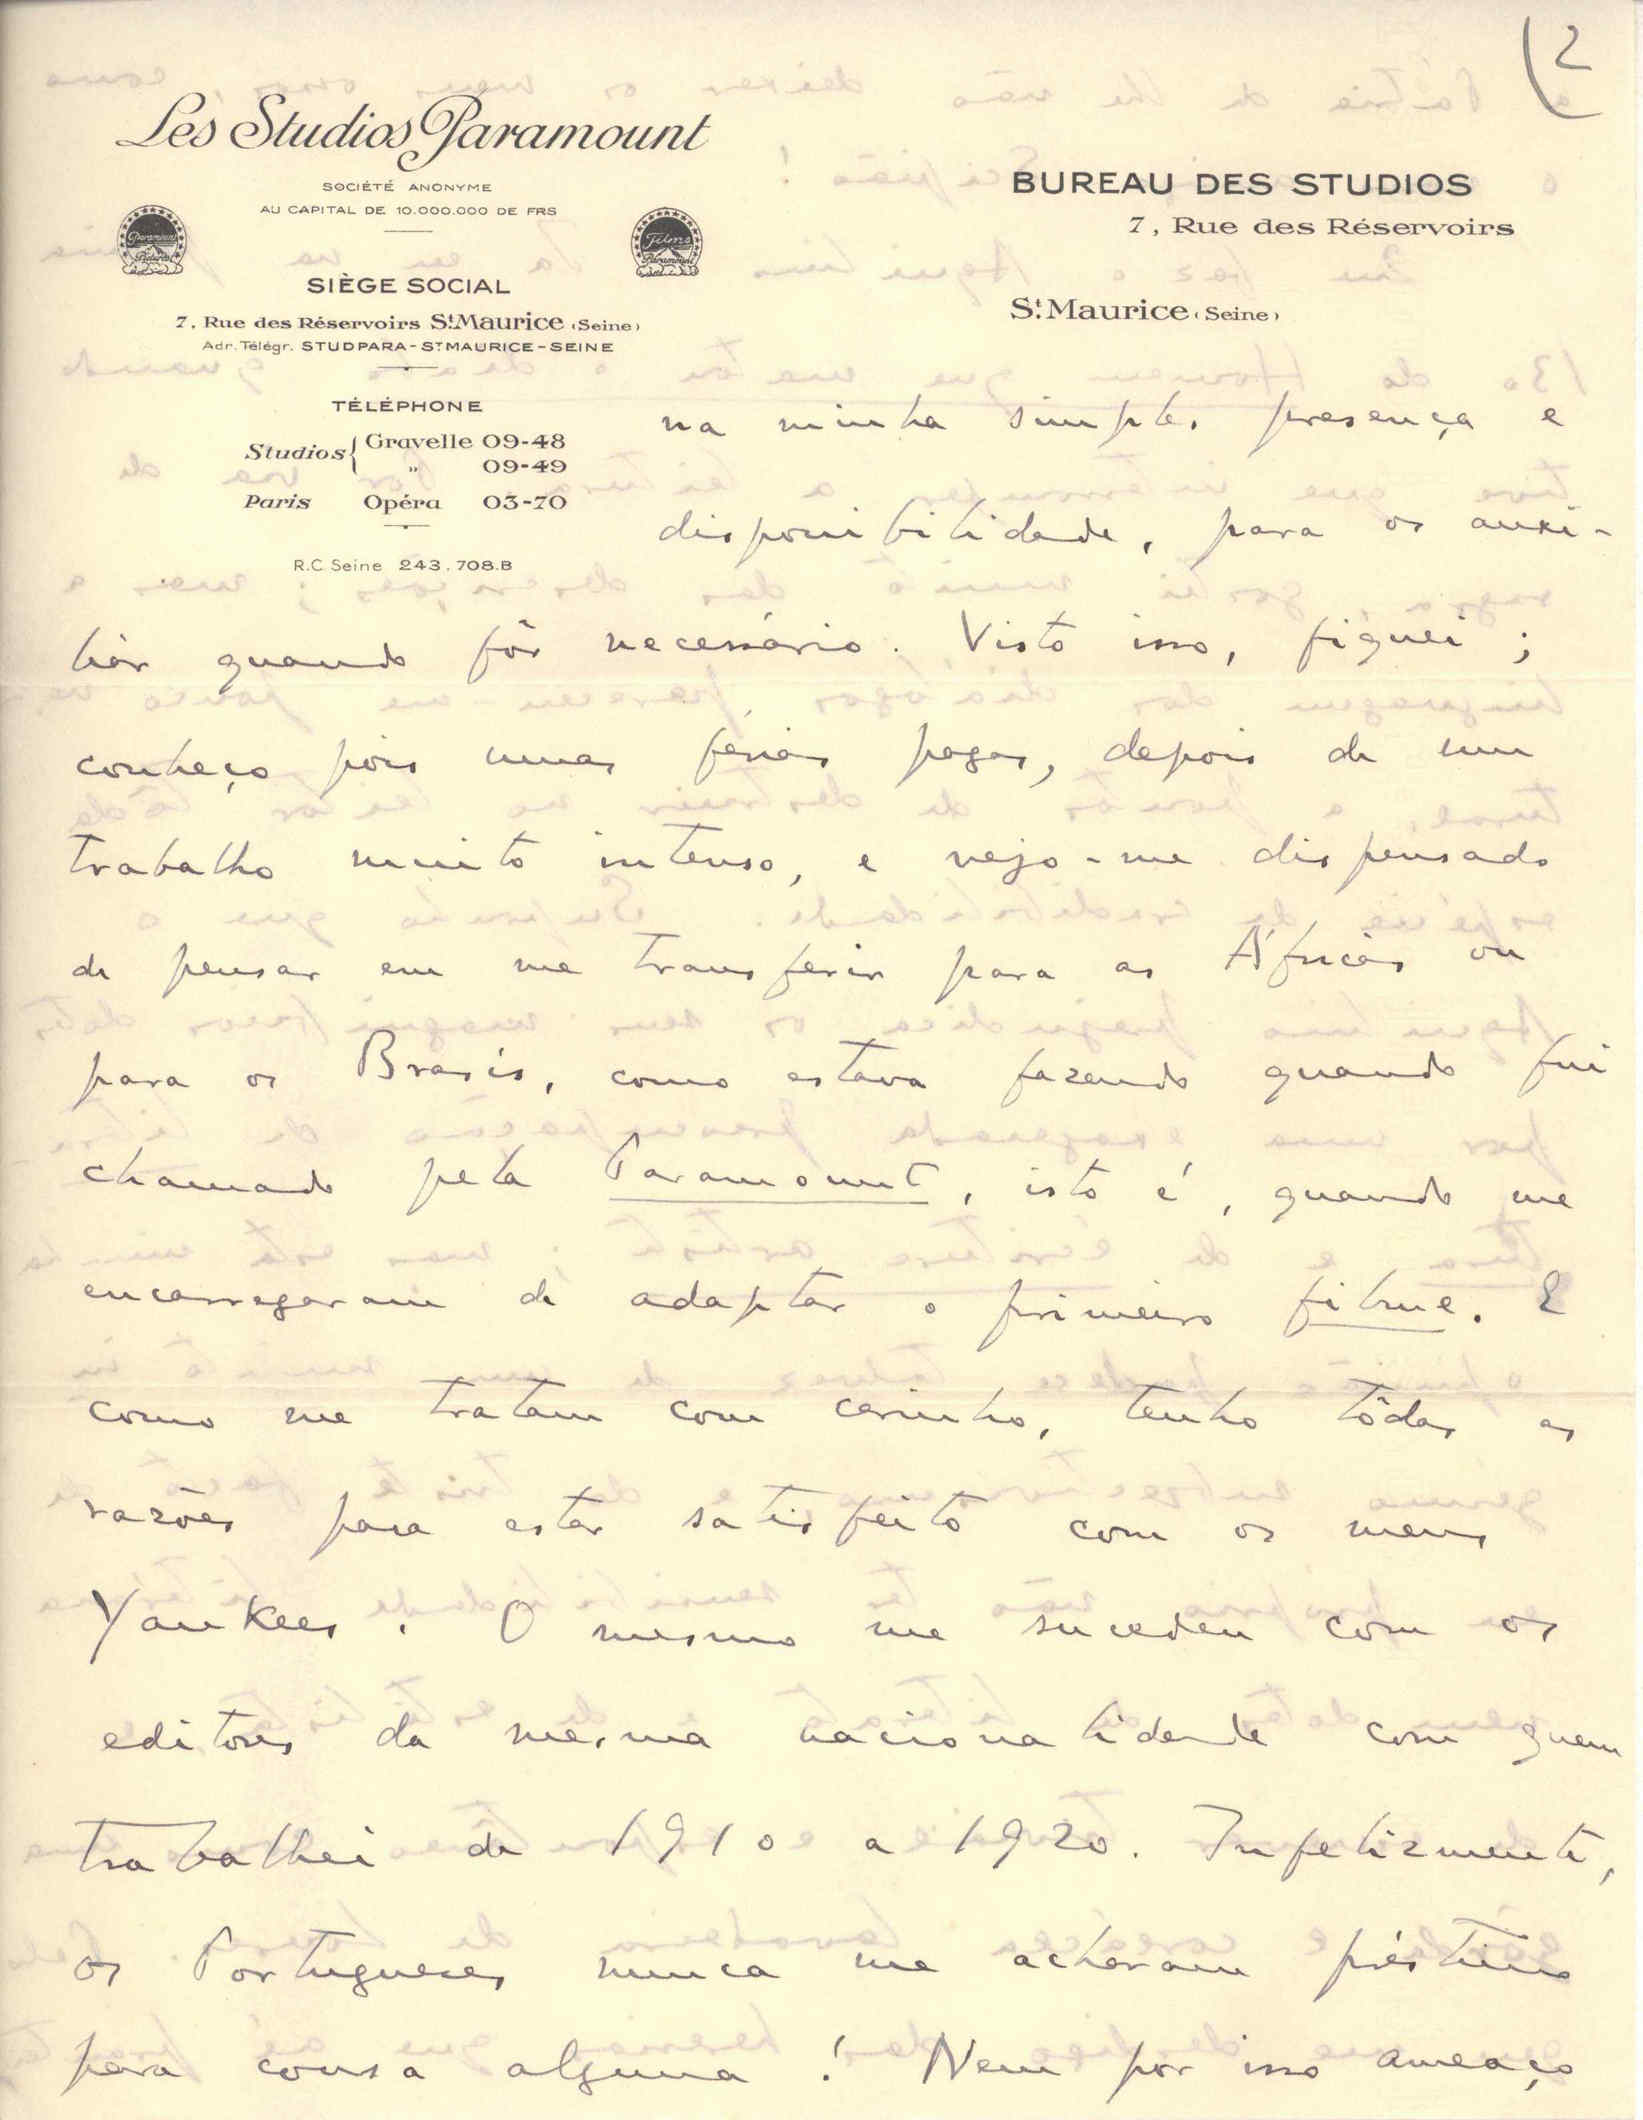 2
Les Studios Paramount
SOCIÉTÉ ANONYME
AU CAPITAL DE 10.000.000 DE FRS
Paramount Pictures
Films Paramount
SIÈGE SOCIAL
7, Rue des Réservoirs St. Maurice (Seine)
Adr. Télégr. STUDPARA-ST MAURICE-SEINE
TÉLÉPHONE
Studios { Gravelle 09-48
" 09-49
Paris Opéra 03-70
R.C. Seine 243.708.B
BUREAU DES STUDIOS
7, Rue des Réservoirs
St. Maurice (Seine)
na minha simples presença e
disponibilidade, para os auxi-
liar quando fôr necessário. Visto isso, fiquei;
conheço pois umas férias pagas, depois de um
trabalho muito intenso, e vejo-me dispensado
de pensar em me transferir para as Áfricas ou
para os Brasis, como estava fazendo quando fui
chamado pela Paramount, isto é, quando me
encarregaram de adaptar o primeiro filme. E
como me tratam com carinho, tenho tôdas as
razões para estar satisfeito com os meus
Yankees. O mesmo me sucedeu com os
editores da mesma nacionalidade com quem
trabalhei de 1910 a 1920. Infelizmente,
os Portugueses nunca me acharam préstimo
para cousa alguma! Nem por isso ameaço